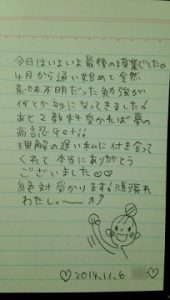 今日はいよいよ最後の授業でした。
4月から通い始めて全然
意味不明だった勉強が
何とか形になってきました！
あと2教科受かれば夢の
高認 Get!!
理解の遅い私に付き合って
くれて本当にありがとう
ございました♡♡
絶対受かります！頑張れ
わたしィー
♡2014.11.6 ♡